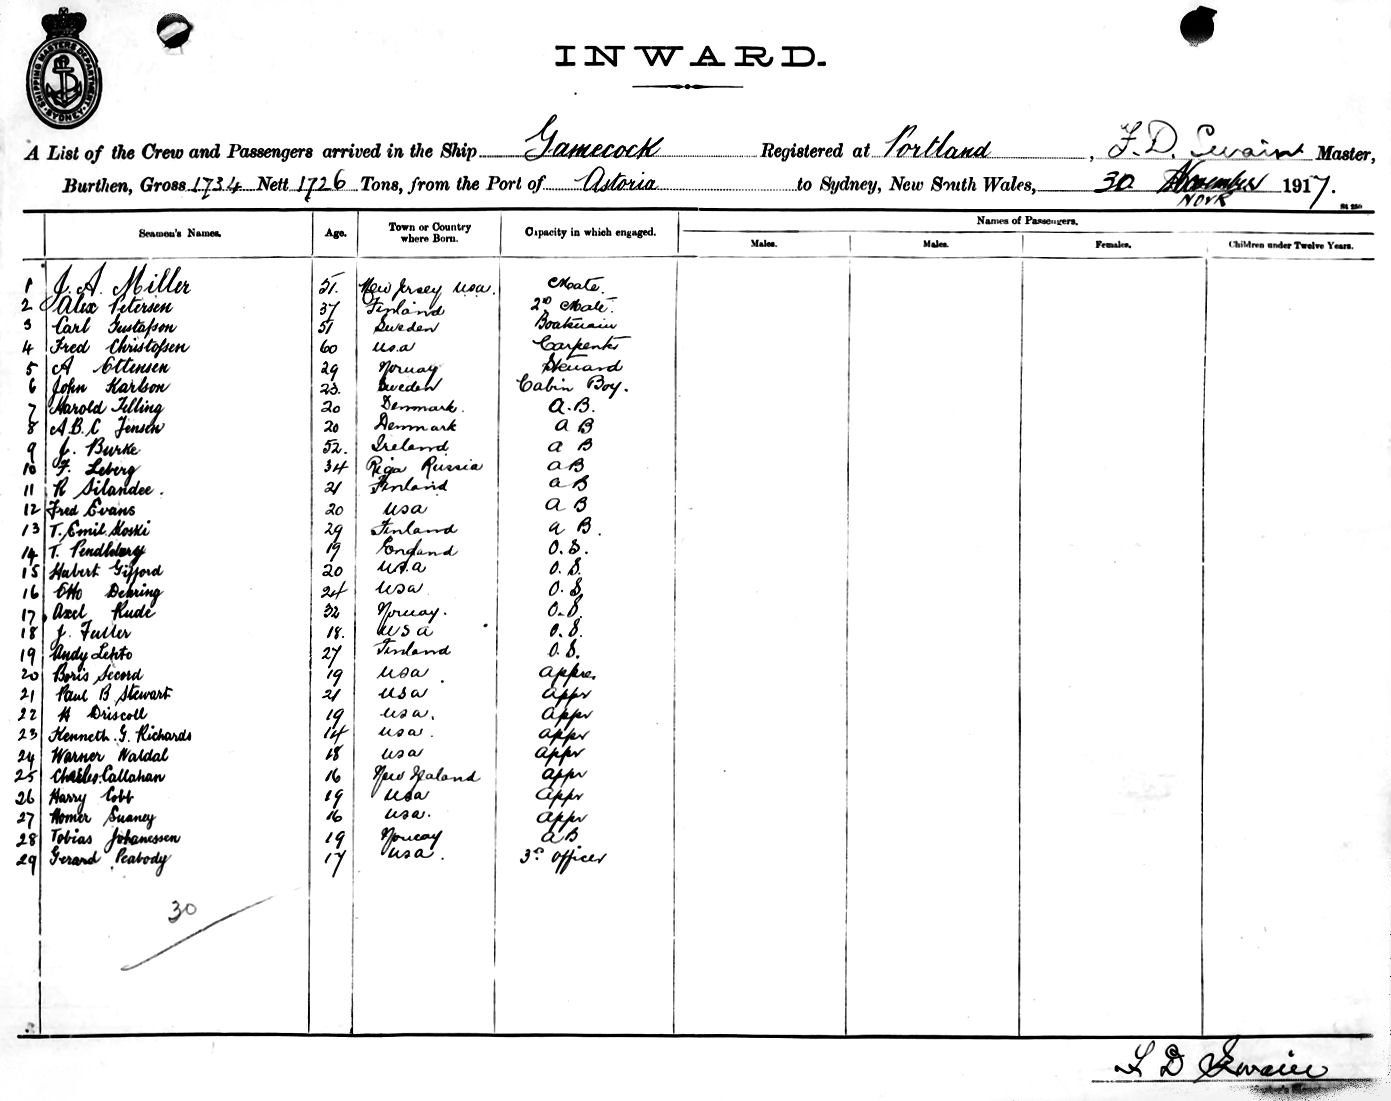 SHIPPING MASTERS DEPARTMENT SYDNEY
INWARD.
A List of the Crew and Passengers arrived in the Ship Gamecock Registered at Portland, F. D. Swain Master,
Burthen, Gross 1734 Nett 1726 Tons, from the Port of Astoria to Sydney, New South Wales, 30 November 1917.
Novr
Names of Passengers.
Seamen's Names. Age. Town or Country where Born. Capacity in which engaged. Males. Males. Females. Children under Twelve Years.
1 J. A. Miller 51. New Jersey USA. Mate.
2 Alex Petersen 37 Finland 2nd Mate.
3 Carl Gustafson 51 Sweden Boatswain
4 Fred Christofsen 60 USA Carpenter
5 A Ottensen 29 Norway Steward
6 John Karlson 23. Sweden Cabin Boy.
7 Harold Felling 20 Denmark. A.B.
8 A B. C Jensen 20 Denmark A B
9 J. Burke 52. Ireland A B
10 F. Leberg 34 Riga Russia A B
11 R Silandee. 21 Finland A B
12 Fred Evans 20 USA A B
13 T. Emil Koski 29 Finland A B.
14 T. Pendlebury 19 England O.S.
15 Hubert Gifford 20 USA O.S.
16 Otto Dehring 24 USA O.S.
17 Axel Rude 32 Norway. O.S.
18 J. Fuller 18. USA O.S.
19 Andy Lehto 27 Finland O.S.
20 Boris Secord 19 USA. Appre.
21 Paul B Stewart 21 USA Appr
22 H Driscoll 19 USA. Appr
23 Kenneth. G. Richards 14 USA. Appr
24 Warner Waldal 18 USA Appr
25 Charles Callahan 16 New Zealand Appr
26 Harry Cobb 19 USA Appr
27 Homer Suaney 16 USA. Appr
28 Tobias Johanessen 19 Norway A B
29 Gerard Peabody 17 USA. 3rd Officer
30
F D Swain